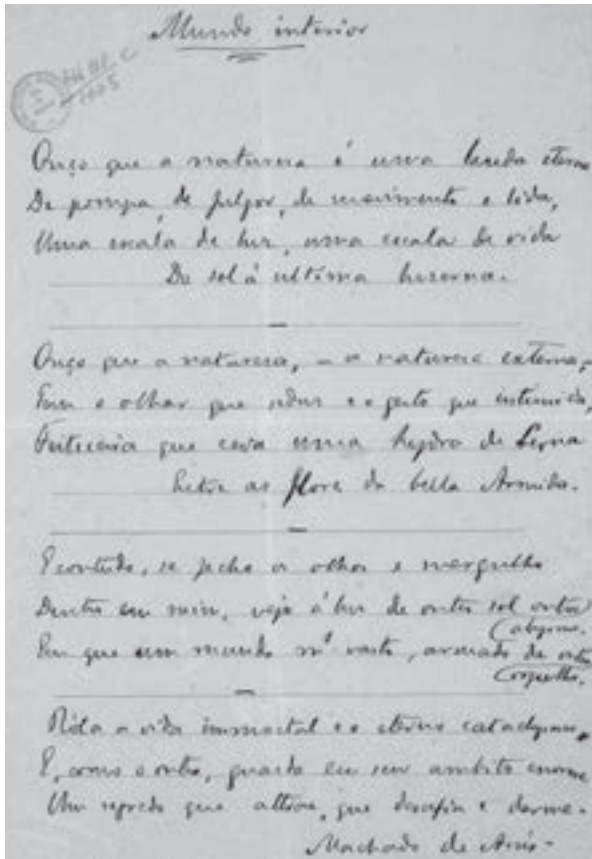 Mundo interior
Ouço que a natureza é uma lauda eterna
De pompa, de fulgor, de movimento e lida,
Uma escala de luz, uma escala de vida
De sol á ultima luzerna.
Ouço que a natureza, – a natureza externa, –
Tem o olhar que seduz e o gesto que intimida,
Feiticeira que ceva uma hydra de Lerna
Entre as flores da bella Armida.
E comtudo, se fecho os olhos e mergulho
Dentro em mim, vejo á luz de outro sol, outro
abysmo.
Em que um mundo mº vasto, armado de outro
orgulho,
Rola a vida immortal e o eterno cataclysmo,
E, como o outro, guarda em seu ambito enorme
Um segredo que attrae, que desafia e dorme.
Machado de Assis.